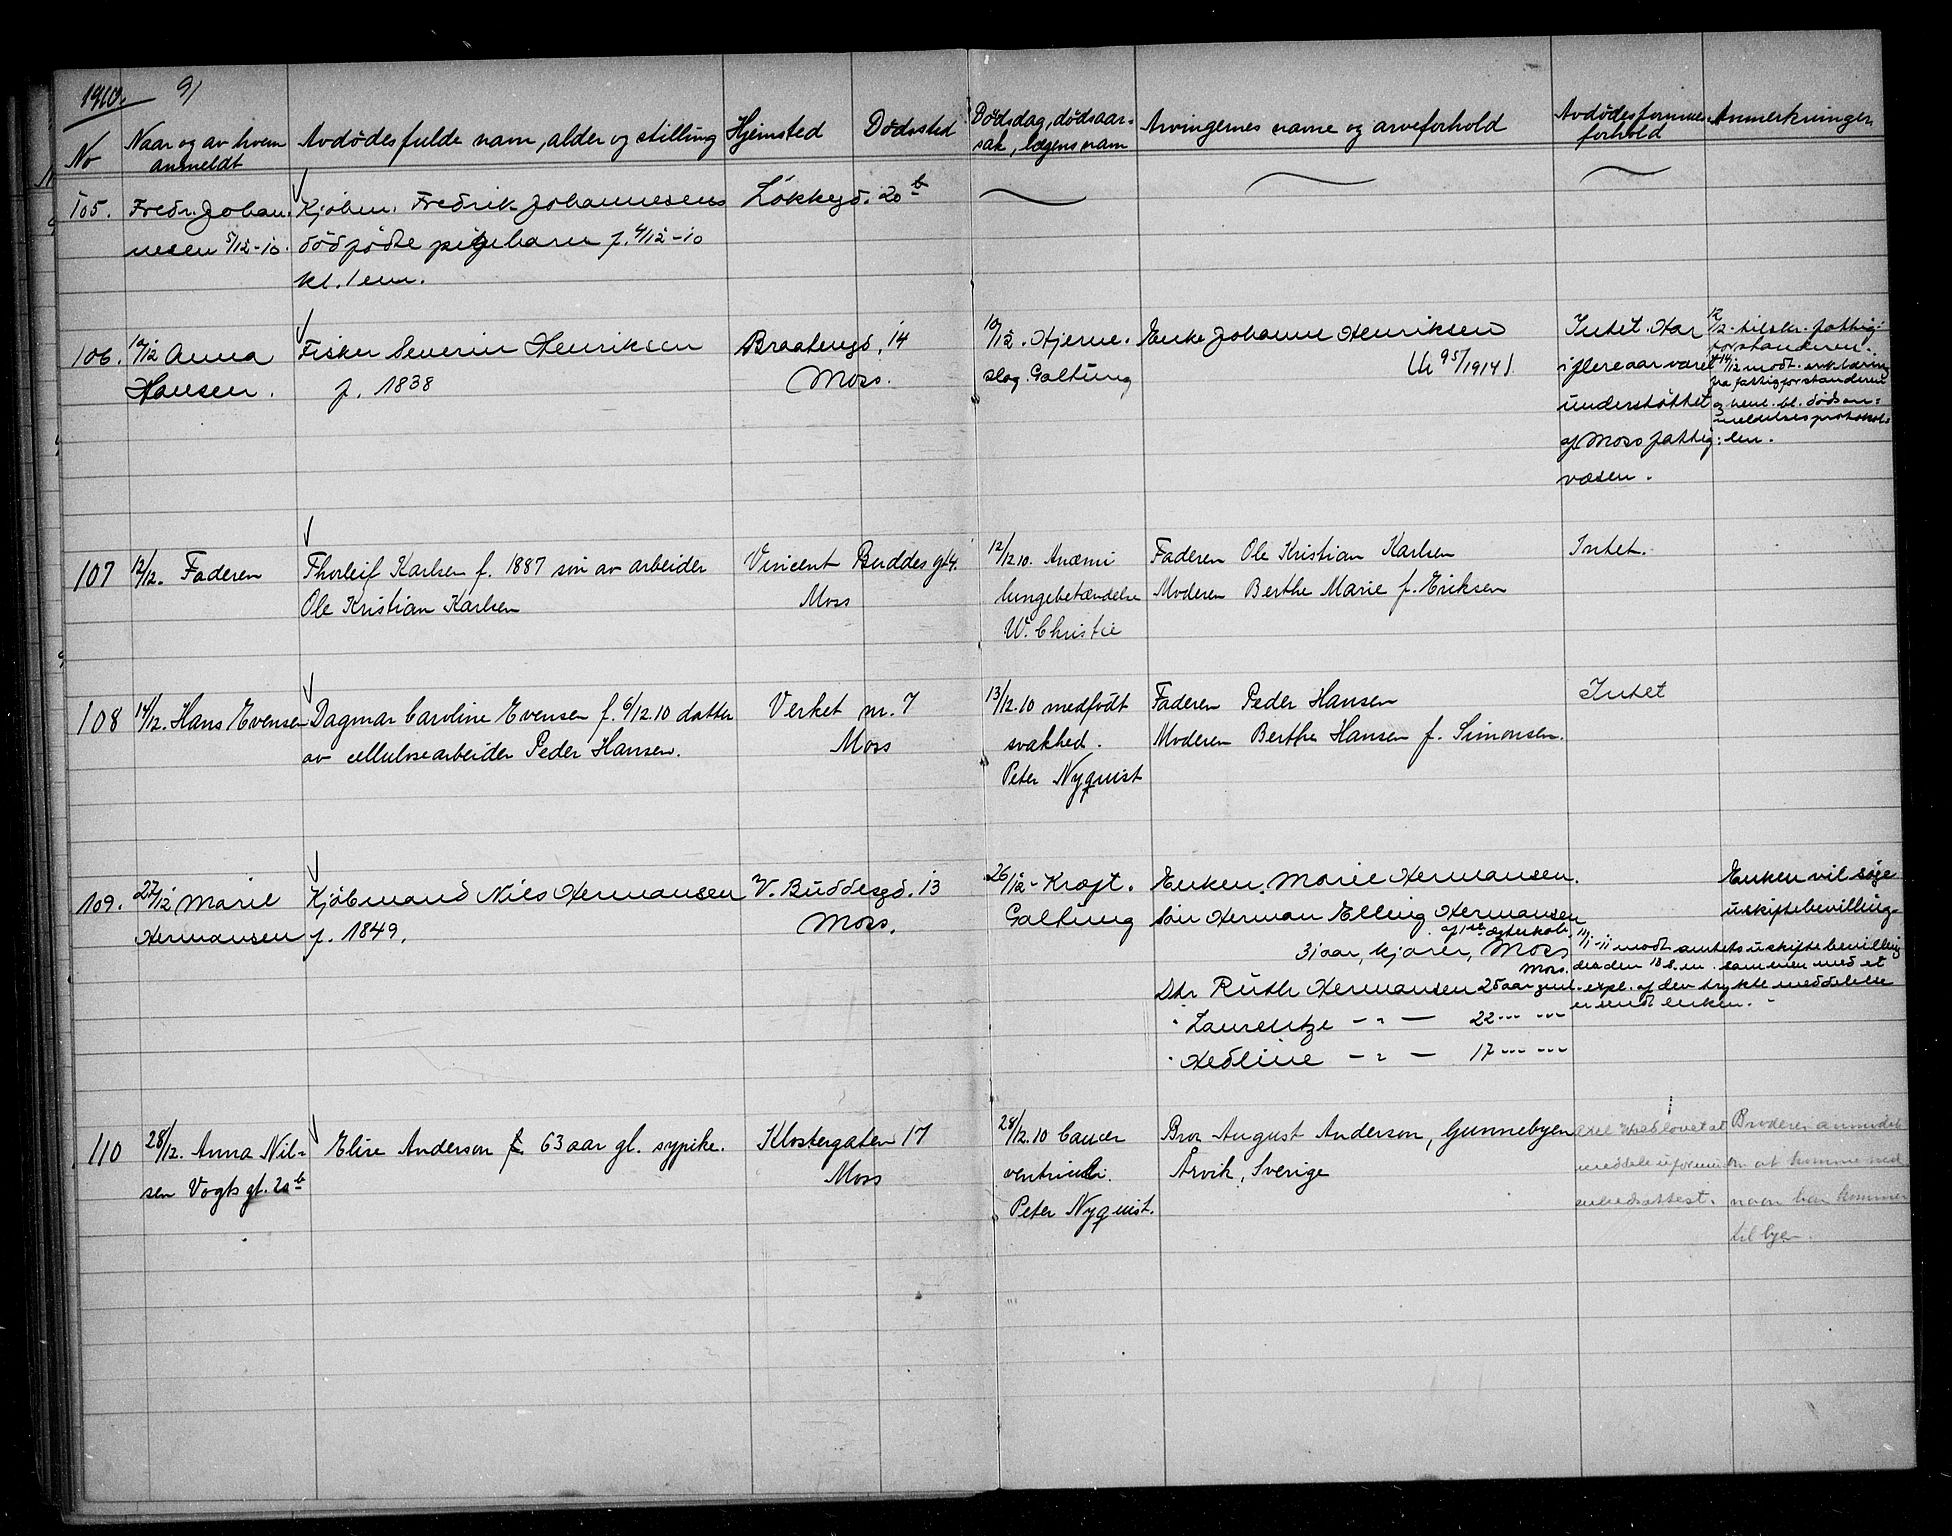 1910. 91
No
Naar og av hvem anmeldt
Avdödes fulde navn, alder og stilling
Hjemsted
Dødssted
Dödsdag, dödsaar=
sak, lægens navn
Arvingernes navne og arveforhold
Avdödes formues
forhold
Anmerkninger
105. Fredr. Johan
nesen 5/12-10.
Kjöbm. Fredrik Johannesens
dödfödte pigebarn f. 4/12-10
kl. 1 em.
Løkkegd. 20 b
106. 10/12 Anna
Hansen.
Fisker Severin Henriksen
f. 1838
Braatengd. 14
Moss.
10/12. Hjerne.
slag. Galtung
Enke Johanne Henriksen
95/1914
Intet. Har
i flere aar været
understøttet
af Moss fattig
væsen.
12/12 tilskr. fattig=
forstanderen.
14/12 modt. erklæring
fra fattigforstanderen
og henl. bl. dödsan=
meldelsesprotokol=
len.
107 12/12. Faderen
Thorleif Karlsen f. 1887 sön av arbeider
Ole Kristian Karlsen
Vincent Buddes gt 4.
Moss
12/12 10. Anæmi
lungebetændelse
W. Christie
Faderen Ole Kristian Karlsen
Moderen Berthe Marie f. Eriksen
Intet.
108 14/12. Hans Evensen
Dagmar Caroline Evensen f. 6/12 10 datter
av cellulosearbeider Peder Hansen.
Verket nr. 7
Moss
13/12.10 medfödt
svakhed.
Peter Nyquist
Faderen Peder Hansen
Moderen Berthe Hansen f. Simonsen.
Intet
109. 27/12 Marie
Hermansen
Kjöbmand Nils Hermansen
f. 1849.
V. Buddesgd. 13
Moss.
26/12 - Kræft.
Galtung
Enken Marie Hermansen.
Sön Herman Elling Hermansen
af 1ste ægteskab.
31 aar, kjører, Moss
Moss.
Dtr Ruth Hermansen 25 aar gml.
" Laurentze - " - 22 --- ---
" Hedline - " - 17 --- ---
Enken vil søge
uskiftebevilling.
11/1-11 modt amtets uskiftebevilling
sammen med et
expl. af den trykte meddelelse
er sendt enken.
110 28/12. Anna Nil=
sen Vogts gt. 20 b
Elise Anderson f. 63 aar gl. sypike.
Klostergaten 17
Moss
28/12.10 Cancer
ventriculi.
Peter Nyquist.
Bror August Anderson, Gunnebyen
Årvik, Sverige
lovet at
meddele
attest.
Broderen anmodet
om at komme ned
naar han kommer
til byen.